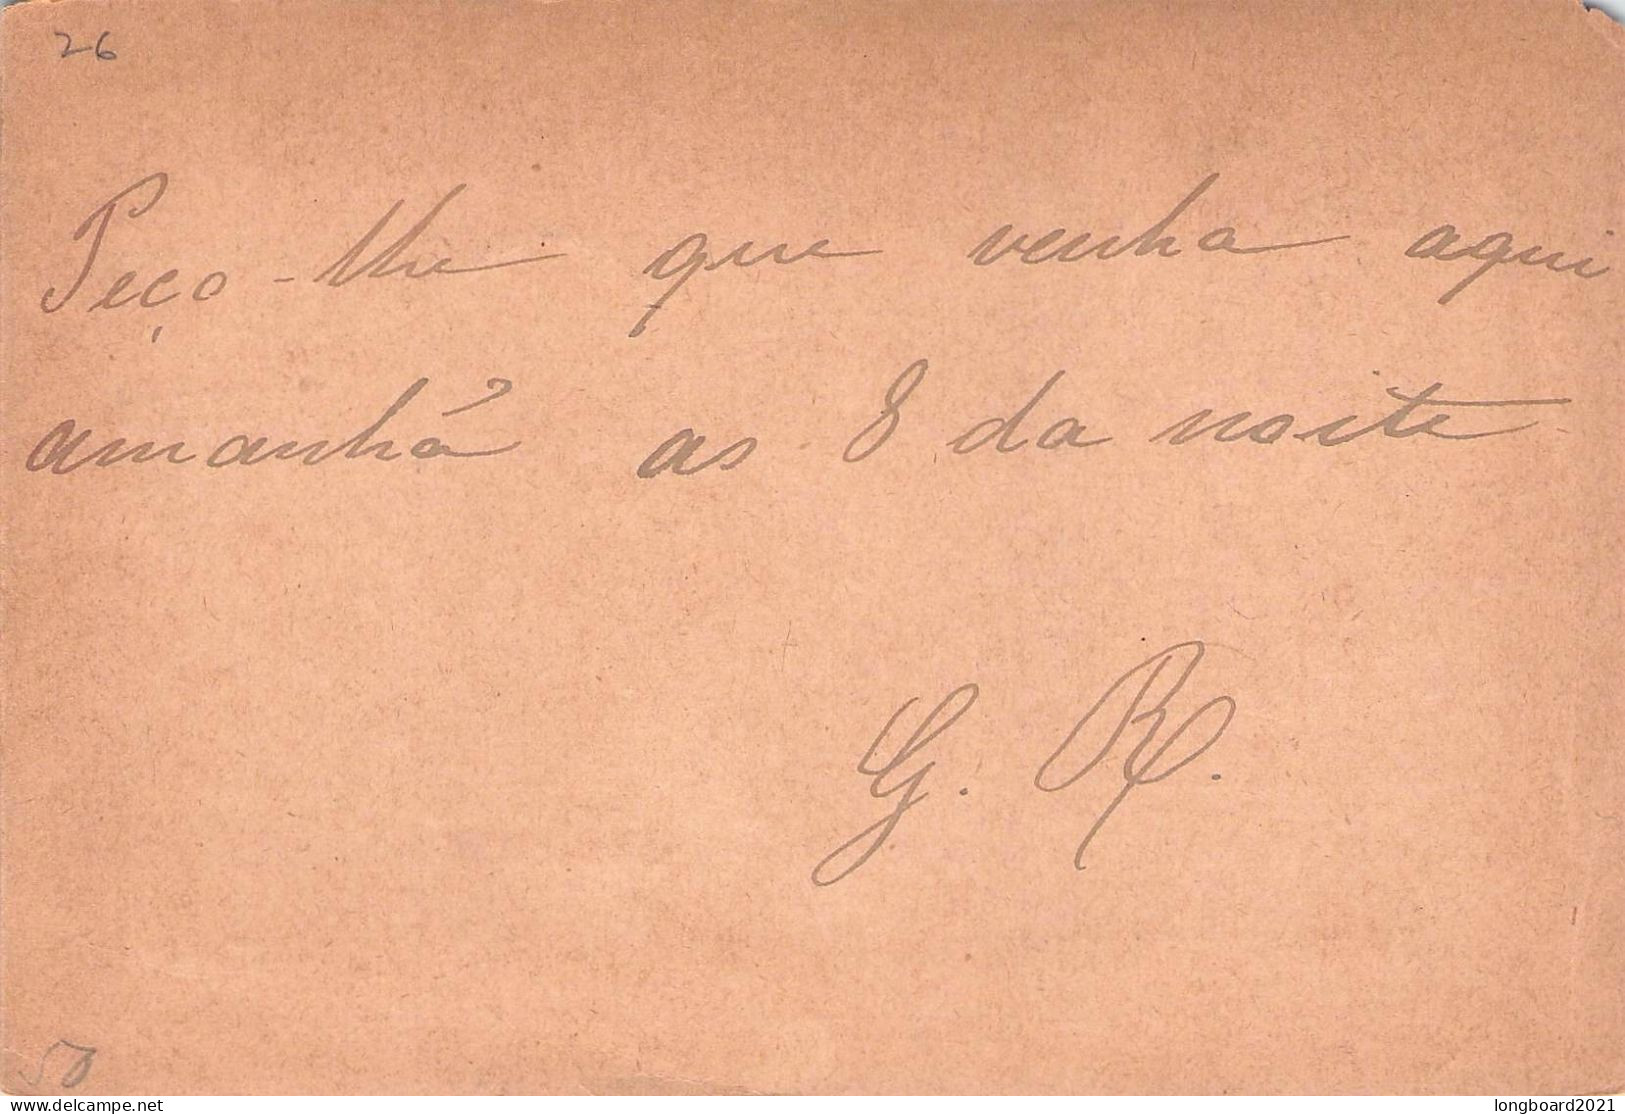 26
Peço-lhe que venha aqui
amanhã as 8 da noite
G. R.
50
delcampe.net
longboard2021